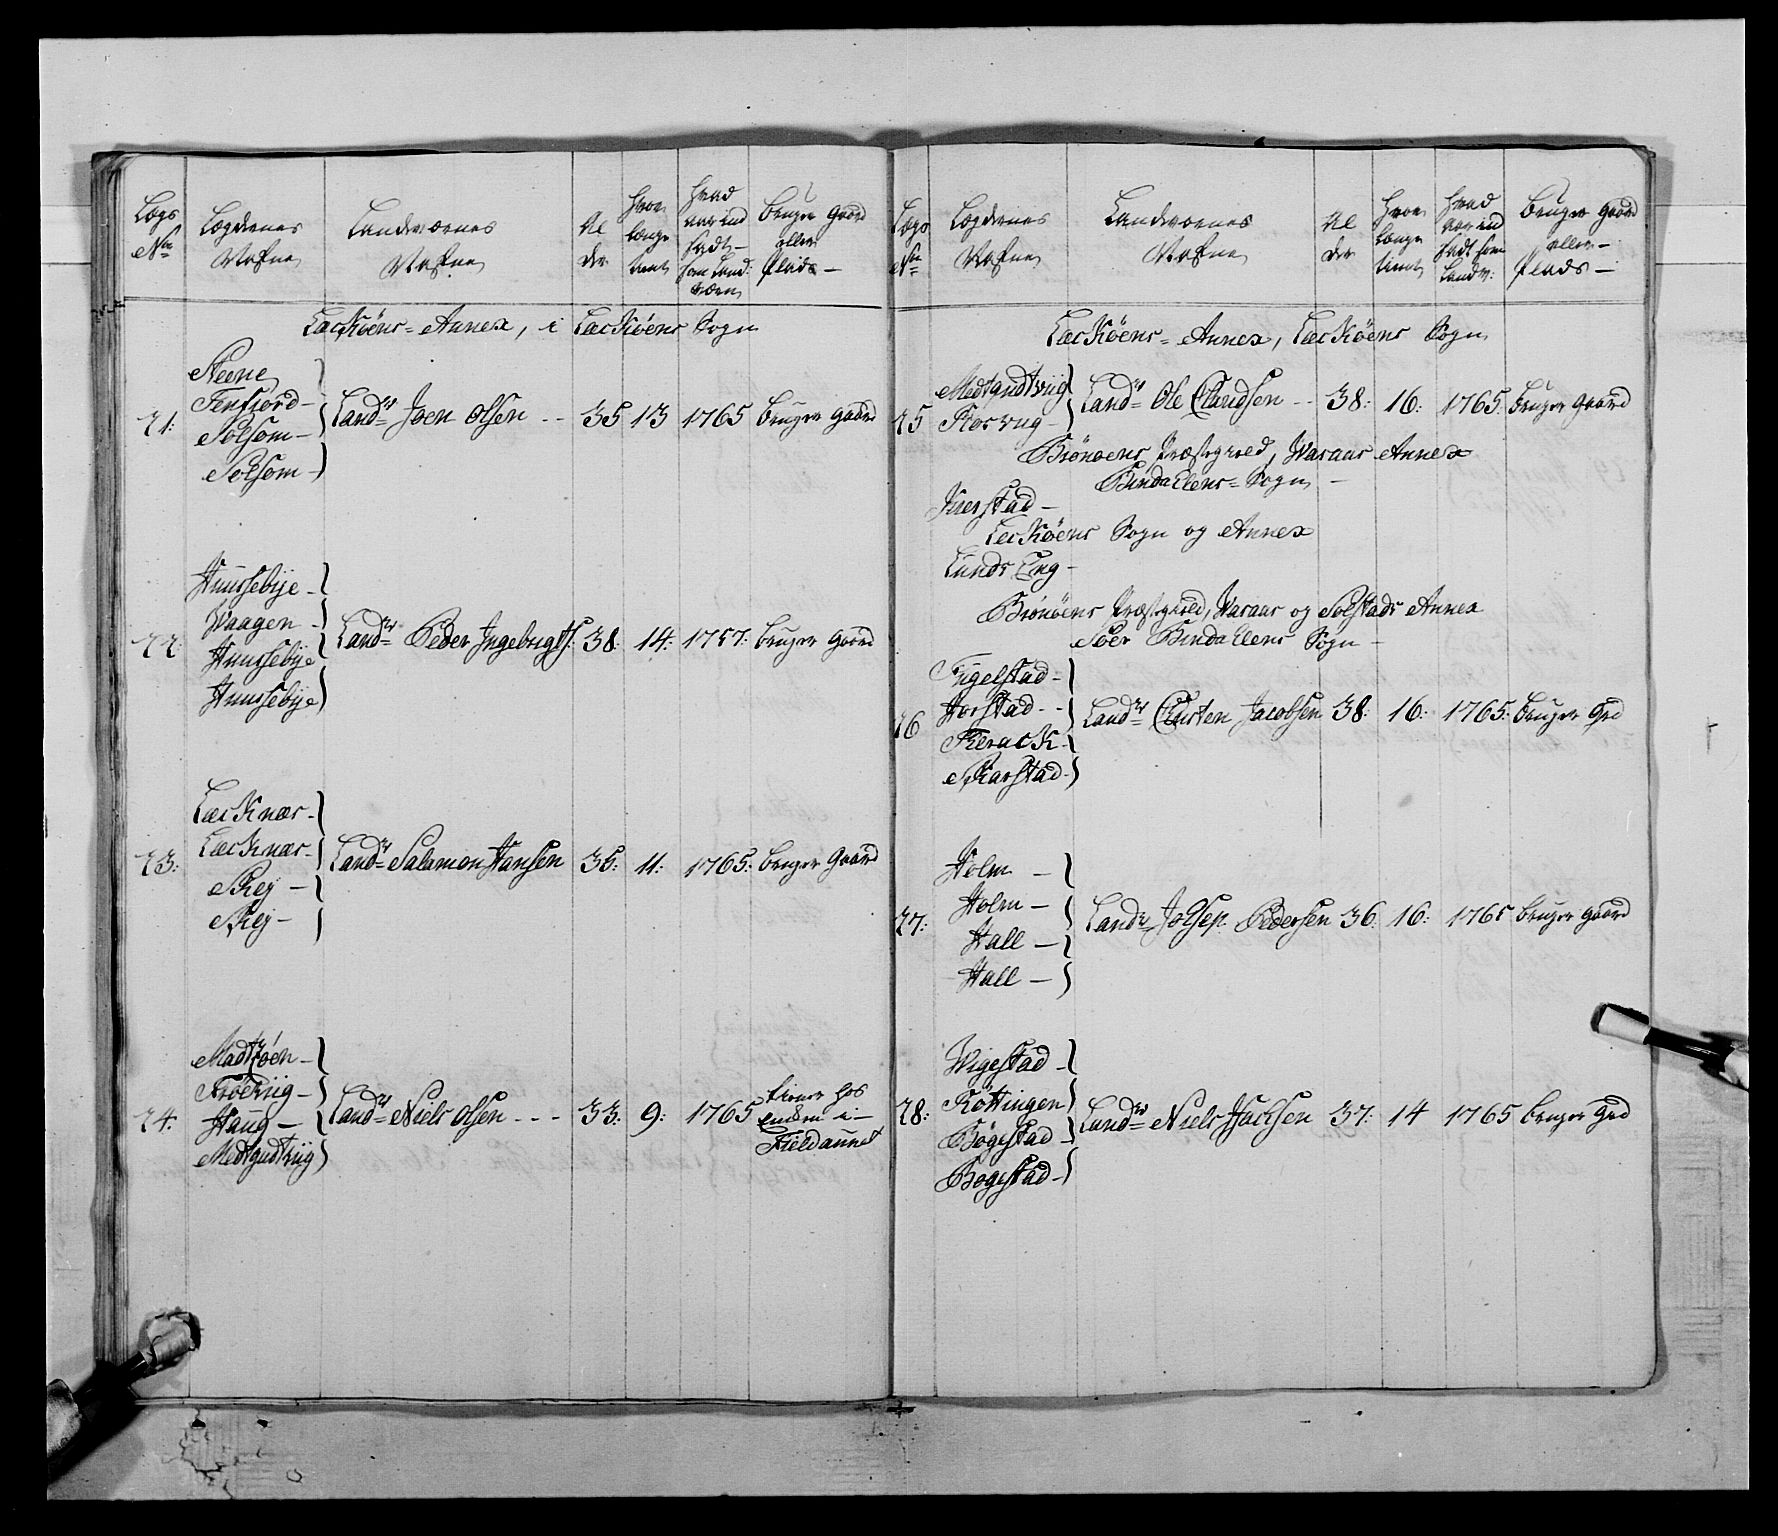 Lægs No
Lægdernes Nafne
Landværnes Nafne
Al der
Hvor længe tient
Hvad aar ind sadt som Land: værn
Bruger Gaard eller Plads
Leckøens Annex, i Leckøens Sogn
21:
Neene
Tenfiord
Solsom
Solsom
Landv: Joen Olsen 35 13 1765 Bruger Gaard
22:
Huussebÿe
Waagen
Huussebÿe
Huussebÿe
Landv: Peder Ingebrigts: 38: 14: 1757: Bruger Gaard
23:
Lecknæs
Lecknæs
Skej
Skej
Landv: Salamon Hansen 35: 11: 1765: Bruger Gaard
24:
Madsøen
Haug
Landv: Niels Olsen 33: 9: 1765 tiener hos
enken i
Lægs No
Lægdernes Nafne
Landværnes Nafne
Al der
Hvor længe tient
Hvad aar ind sadt som Landv:
Bruger Gaard eller Plads
Leckøens Annex, Leckøens Sogn
25
Korsvug
Landv: Ole Claudsen 38: 16: 1765: Bruger Gaard
Brönöens Præstegield, Waraas Annex
Bindallens Sogn
Kierstad
Leckøens Sogn og Annex
Lunds Eng
Brönöens Præstegield, Waraas og Solstads Annex
Søer Bindallens Sogn
26
Fugelstad
Horstad
Terack
Skarstad
Landv: Jacobsen 38: 16: 1765: Bruger Grd
27:
Holm
Holm
Hall
Hall
Landv: Jossep Pedersen 36: 16: 1765 Bruger Gaard
28:
Wigestad
Røttingen
Bøgestad
Bogestad
Landv: Niels Isachsen 37: 14 1765 Bruger Grd